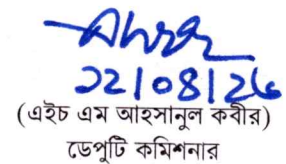 ২২|০৪|২৬
(এইচ এম আহসানুল কবীর)
ডেপুটি কমিশনার